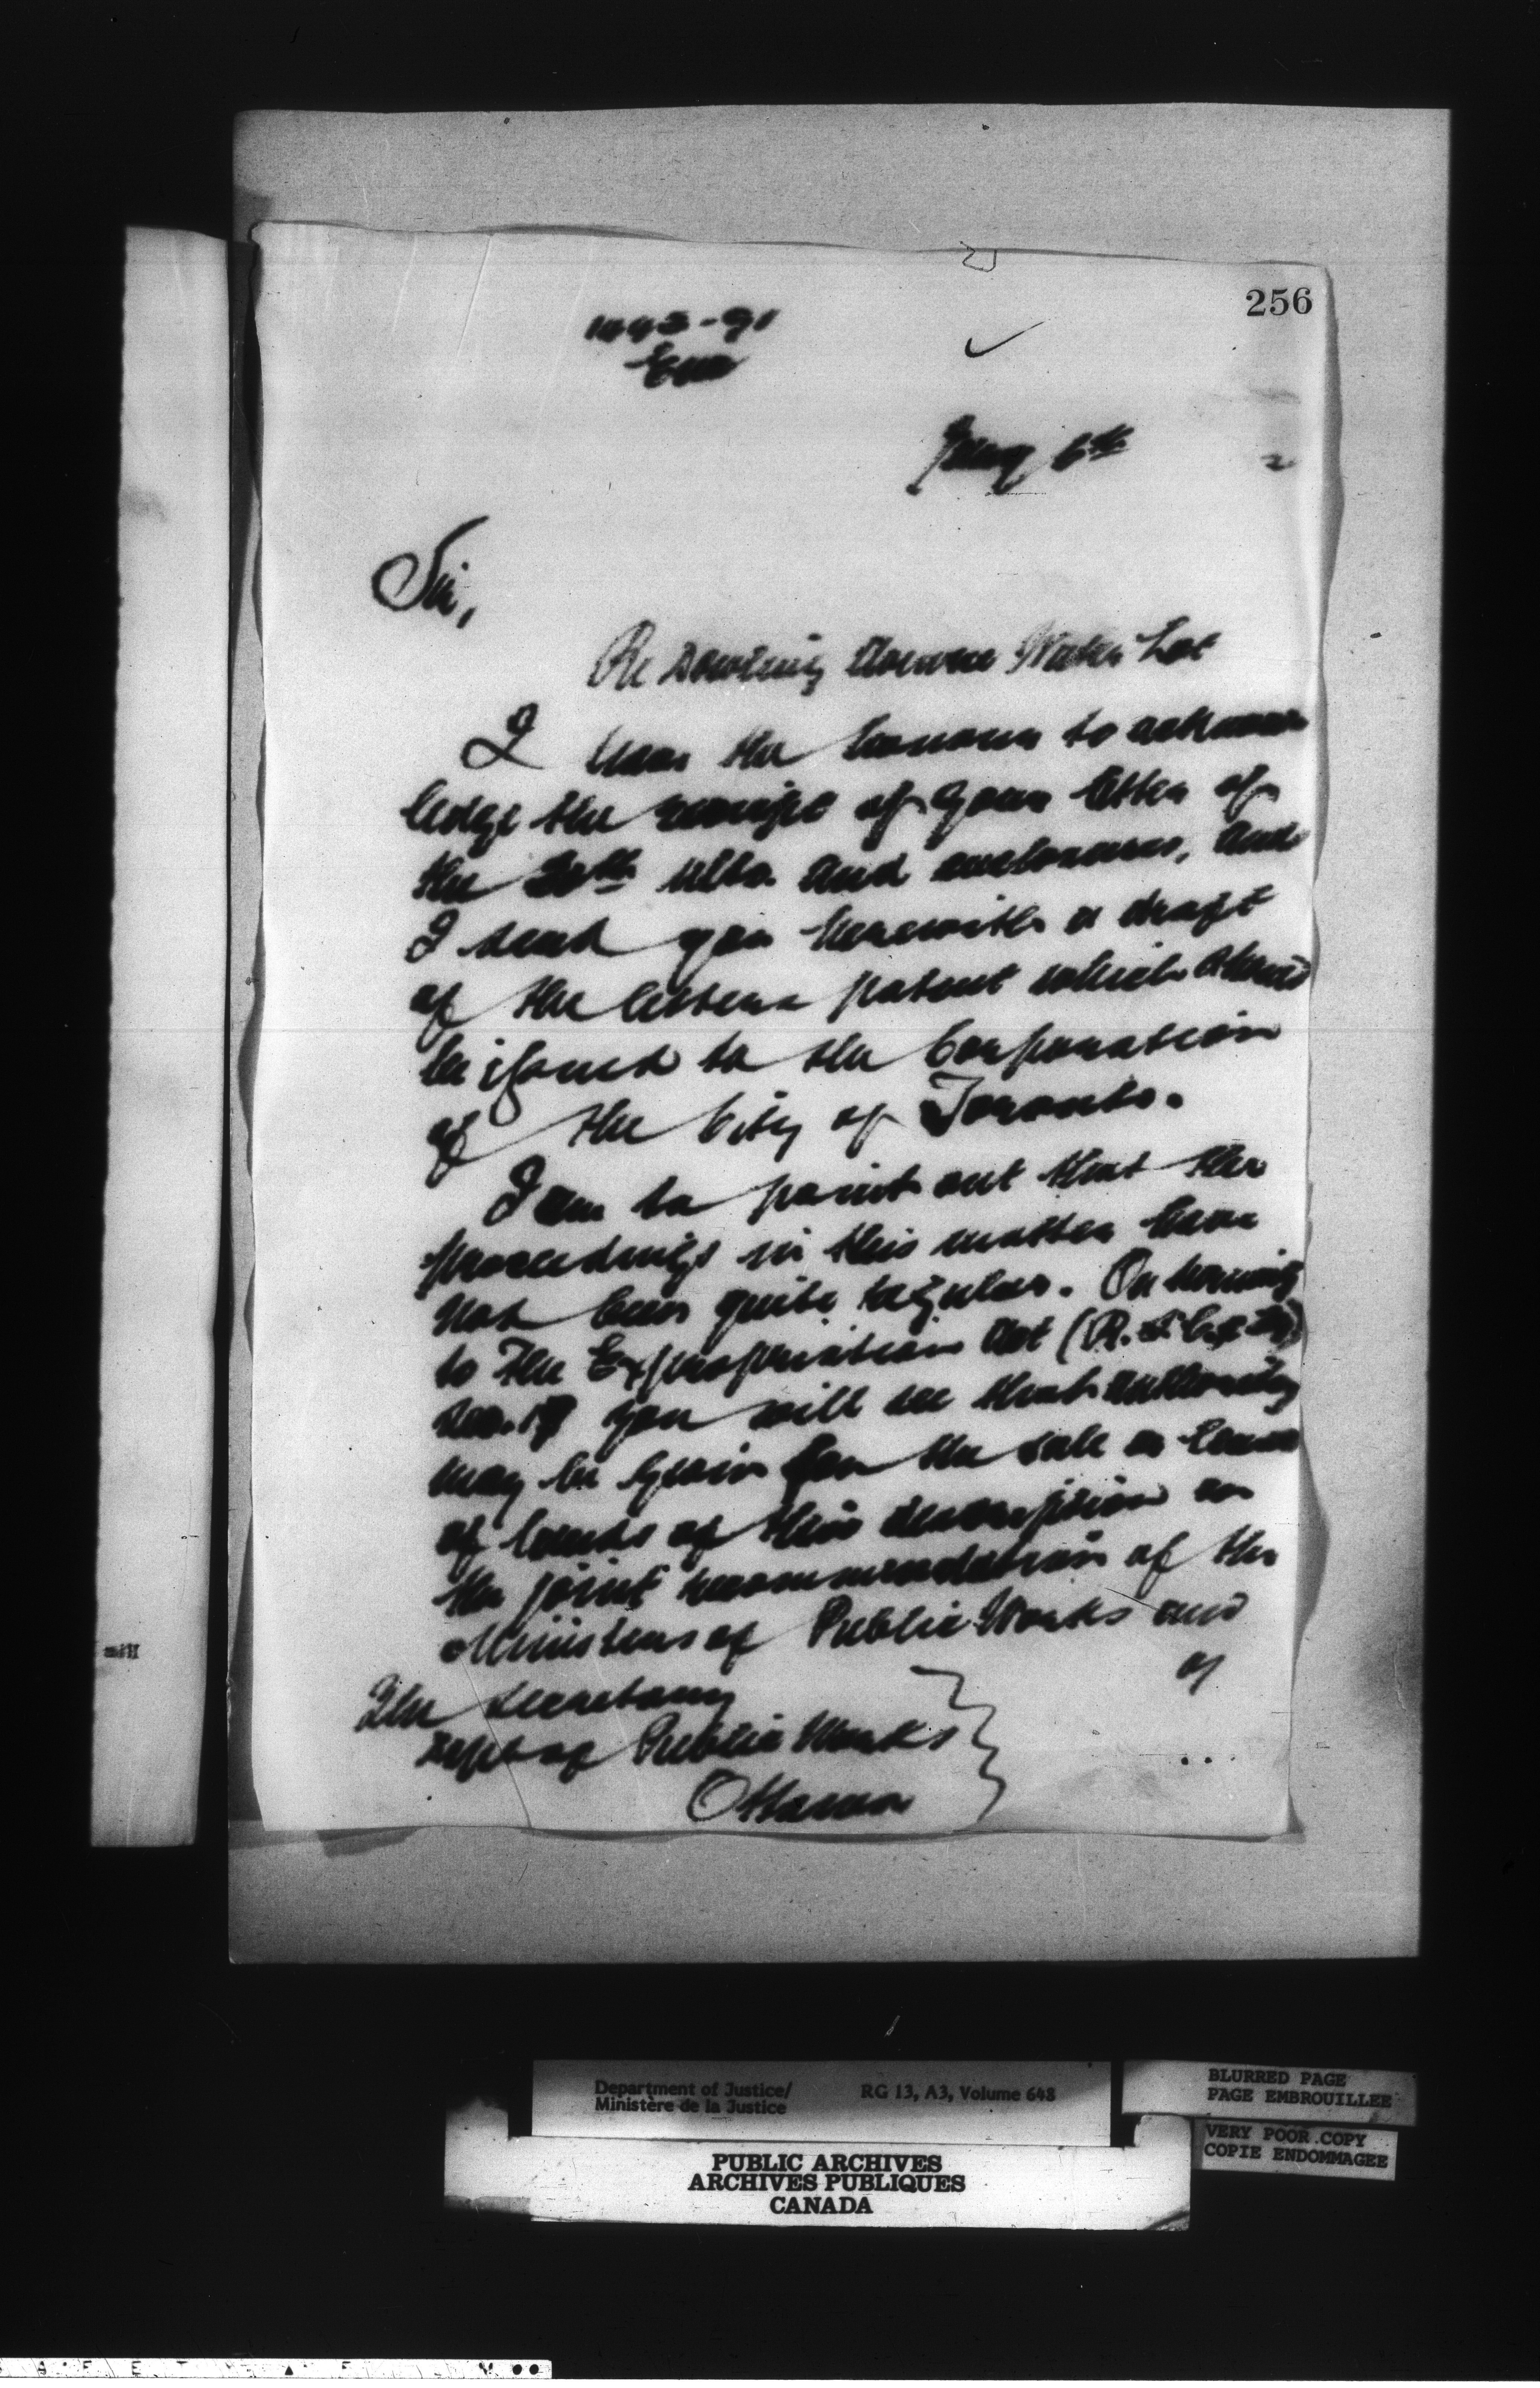 256
1443-91
May 6th
2
Sir,
Re Dowling Avenue Water Lot
I have the honour to acknow
ledge the receipt of your letter of
the 20th ulto. and enclosures, and
I send you herewith a draft
of the letters patent which should
be issued to the Corporation
of the City of Toronto.
I am to point out that the
proceedings in this matter have
not been quite regular. On turning
to The Expropriation Act (R.S.C.
sec. 17 you will see that authority
may be given for the sale or lease
of lands of this description on
the joint recommendation of the
Ministers of Public Works and
of
The Secretary
Dept of Public Works
Ottawa
Department of Justice/ RG 13, A3, Volume 648
Ministère de la Justice
BLURRED PAGE
PAGE EMBROUILLEE
VERY POOR COPY
COPIE ENDOMMAGEE
PUBLIC ARCHIVES
ARCHIVES PUBLIQUES
CANADA